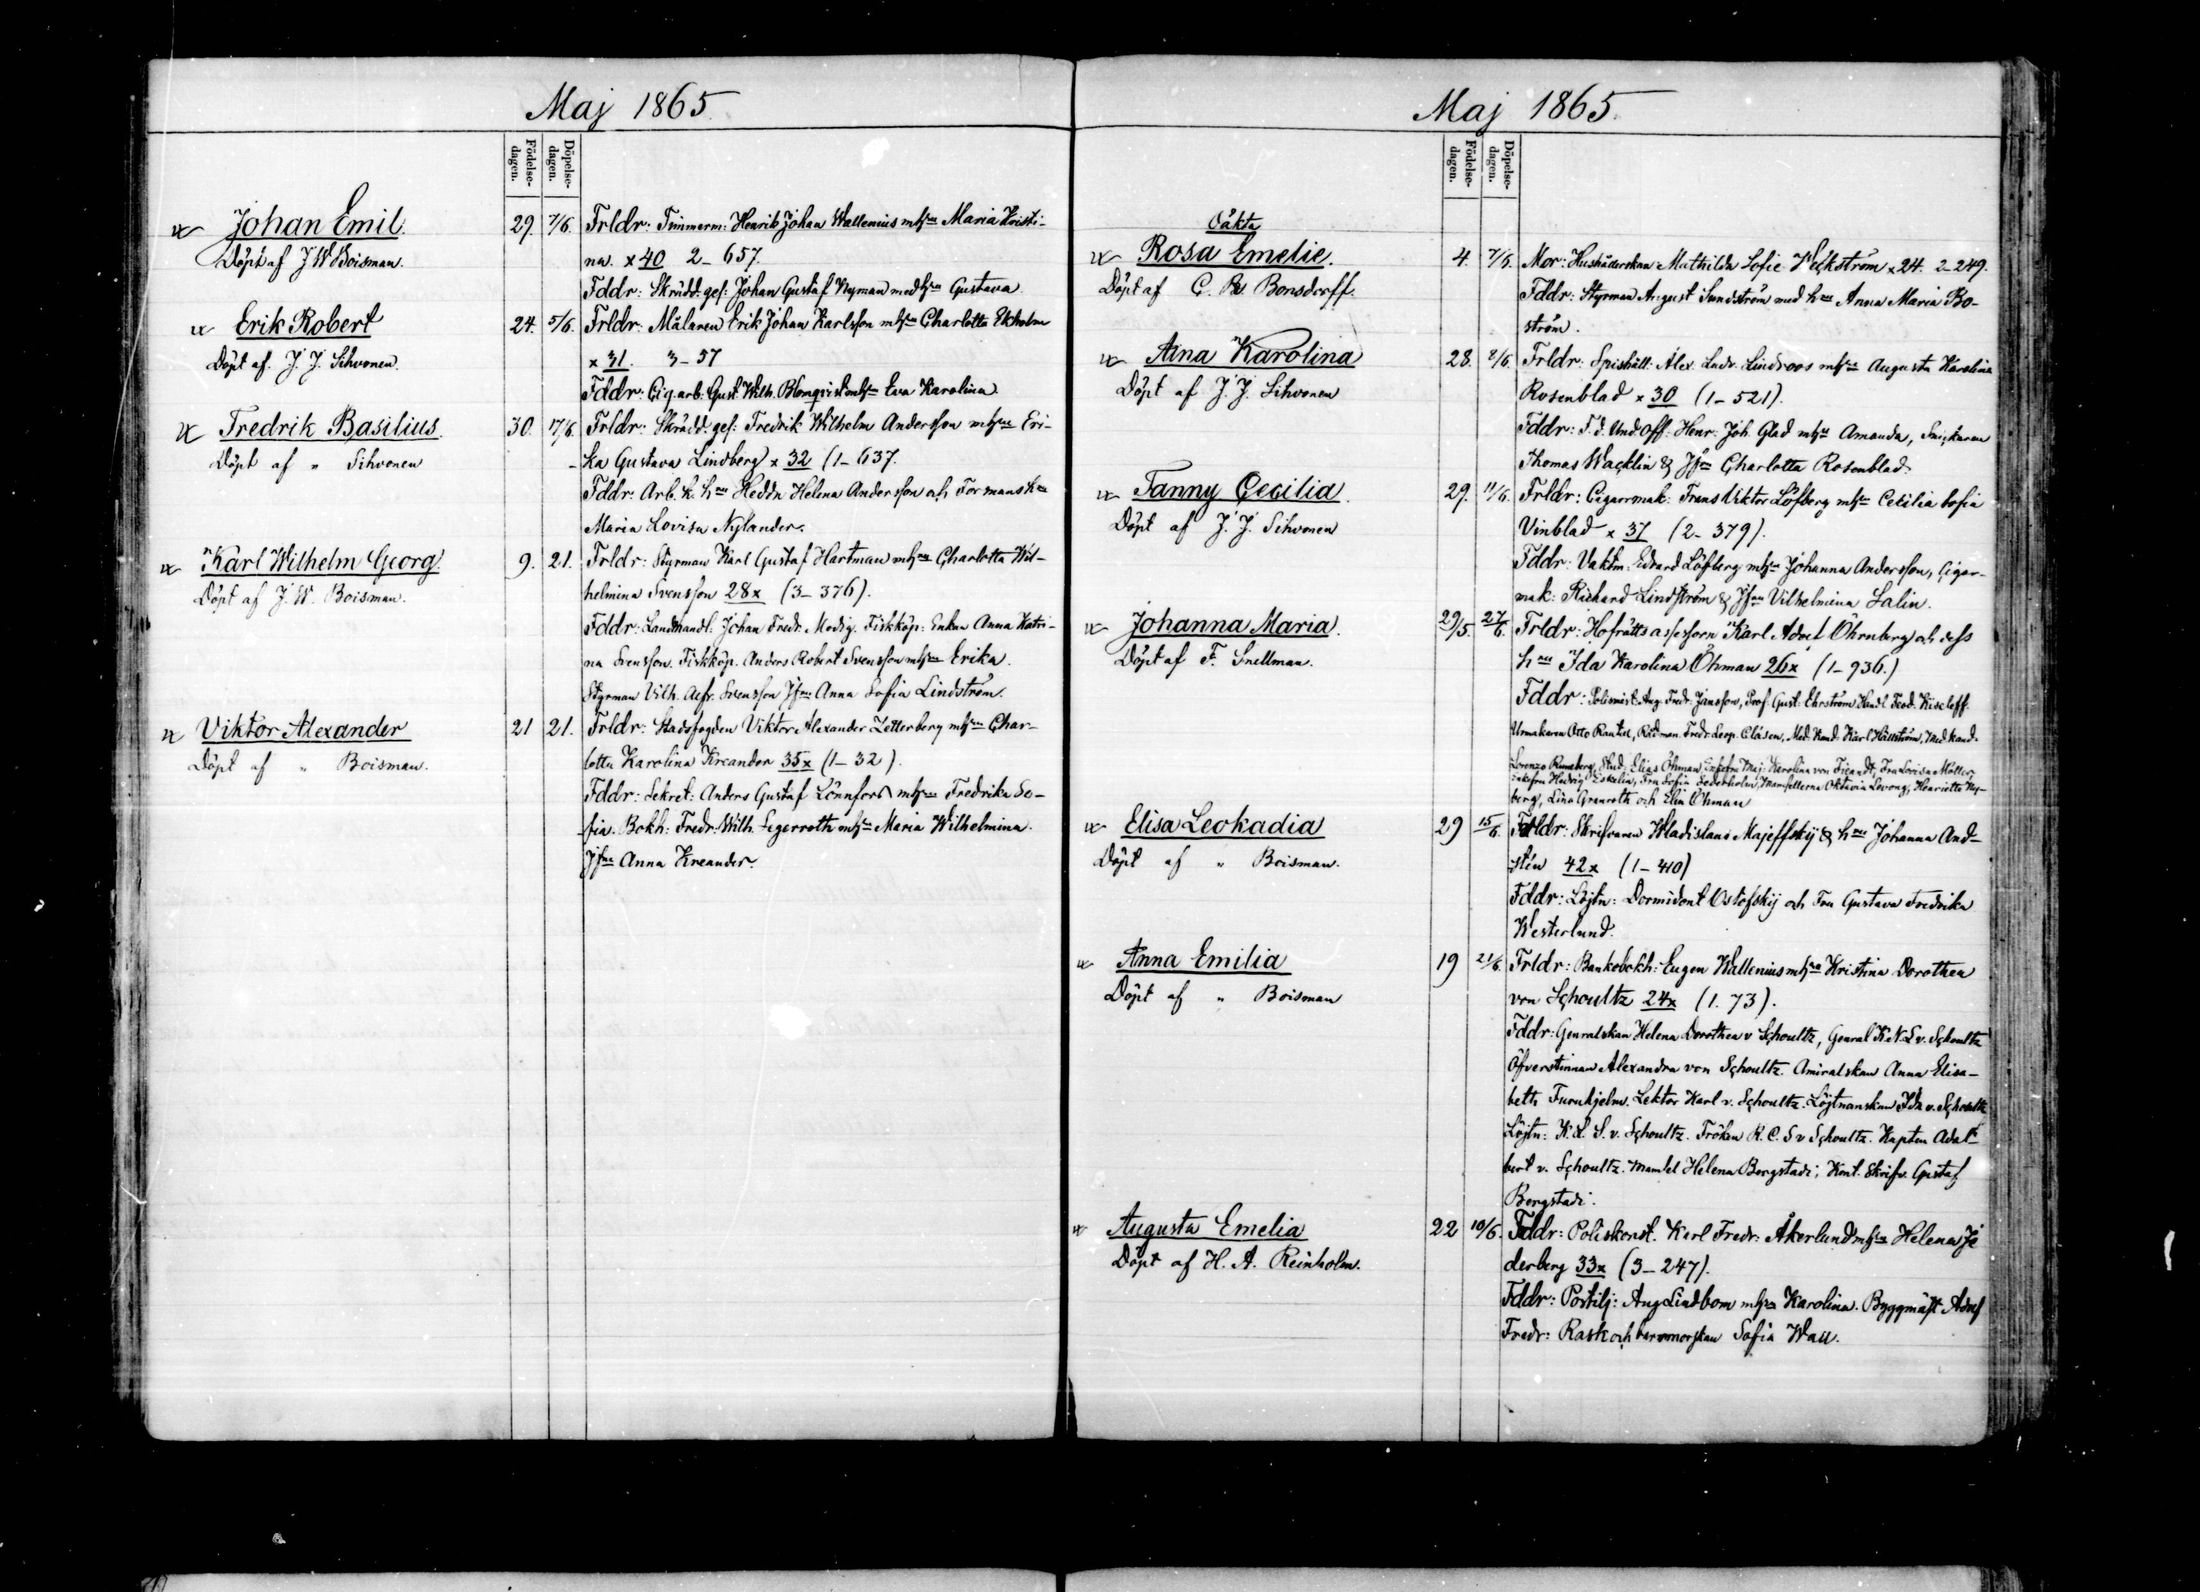 Maj 1865.
Födelse-
dagen.
Döpelse-
dagen.
Johan Emil. 29. 7/6. Frldr: Timmerm: Henrik Johan Wallenius mhu Maria Kristi-
Döpt af J W Boisman. na. x 40 2-657.
Fddr: Skrädd. ges: Johan Gustaf Nyman med hu Gustava
Erik Robert 24. 5/6. Frldr: Målaren Erik Johan Karlsson mhu Charlotta Ekholm
Döpt af. J. J. Sihvonen. x 31. 3-57
Fddr: Cig.arb: Gust. Wilh. Blomqvist mhu Eva Karolina
Fredrik Basilius. 30. 17/6. Frldr: Skrädd. ges: Fredrik Wilhelm Andersson mhu Eri-
Döpt af " Sihvonen ka Gustava Lindberg x 32 (1-637.
Fddr: Arb. k. hu Hedda Helena Andersson och Formans hu
Maria Lovisa Nylander.
Karl Wilhelm Georg. 9. 21. Frldr: Styrman Karl Gustaf Hartman mhu Charlotta Wil-
Döpt af J. W. Boisman. helmina Svensson 28x (3-376).
Fddr: Landthandl: Johan Fredr. Modig. Fiskköp: Enkan Anna Katri-
na Svensson. Fiskköp. Anders Robert Svensson mhu Erika.
Styrman Vilh. Alfr. Svensson Jfru Anna Sofia Lindström.
Viktor Alexander 21 21. Frldr: Stadsfogden Viktor Alexander Zetterberg mhu Char-
Döpt af " Boisman. lotta Karolina Kreander 35x (1-32).
Fddr: Sekret: Anders Gustaf Lönnfors mhu Fredrika So-
fia. Bokh: Fredr. Wilh. Segerroth mhu Maria Wilhelmina.
Jfru Anna Kreander.
Maj 1865.
Födelse-
dagen.
Döpelse-
dagen.
Oäkta
Rosa Emelie. 4. 7/6. Mor: Hushållerskan Mathilda Sofie Weckström x 24. 2-249.
Döpt af C. R. Bonsdorff. Fddr: Styrman August Sundström med hu Anna Maria Bo-
ström.
Aina Karolina 28. 8/6. Frldr: Spishåll: Alex. Ludv. Lindroos mhu Augusta Karolina
Döpt af J. J. Sihvonen Rosenblad x 30 (1-521).
Fddr: F. d. Und. Off: Henr: Joh. Glad mhu Amanda, Snickaren
Thomas Wacklin & Jfru Charlotta Rosenblad.
Fanny Cecilia. 29. 11/6. Frldr: Cigarrmak: Frans Viktor Löfberg mhu Cecilia Sofia
Döpt af J. J. Sihvonen Vinblad x 37 (2-379).
Fddr: Vaktm. Edvard Löfberg mhu Johanna Andersson, Cigar-
mak: Richard Lindström & Jfru Vilhelmina Salin.
Johanna Maria. 29/5. 27/6. Frldr: Hofrättsassessorn Karl Adolf Öhrnberg och dess
Döpt af F. Snellman. hu Ida Karolina Öhman 26x (1-936.)
Fddr: Polismäst. Aug. Fredr. Jansson, Prof. Gust. Ehrström Handl. Feod. Kiseleff.
Urmakaren Otto Rautell, Rådman Fredr. Leop. Clásen, Med. Kand. Karl Hällström, Med. kand.
Lorenzo Runeberg, Stud. Elias Öhman Enkefru Maj: Karolina von Fieandt, Fru Lovisa Möller
Enkefru Hedvig Eskelin, Fru Sofia Söderholm, Mamsellerna Oktavia Levong, Henriette Ny-
berg, Lina Granroth och Elin Öhman
Elisa Leokadia 29 15/6. Frldr: Skrifvaren Wladislaus Majeffskij & hu Johanna And-
Döpt af " Boisman. stén 42x (1-410)
Fddr: Löjtn: Dormidont Ostofskij och Fru Gustava Fredrika
Westerlund.
Anna Emilia 19 21/6. Frldr: Bankobokh: Eugen Wallenius mhu Kristina Dorothea
Döpt af " Boisman von Schoultz 24x (1. 73).
Fddr: Genralskan Helena Dorothea v Schoultz, Genral K. N. L v. Schoultz
Öfverstinnan Alexandra von Schoultz. Amiralskan Anna Elisa-
beth Furuhjelm. Lektor Karl v. Schoultz. Löjtnanskan Ida v. Schoultz
Löjtn: K. L. S. v. Schoultz. Fröken R. C. S v Schoultz. Kapten Adal-
bert v. Schoultz. Mamsel Helena Bergstadi, Kont. Skrifv. Gustaf
Bergstadi.
Augusta Emelia 22 10/6. Fddr: Poliskonst. Karl Fredr: Åkerlund mhu Helena Je
Döpt af H. A. Reinholm. derberg 33x (3-247).
Fddr: Postilj: Aug Lindbom mhu Karolina. Byggmäst Adolf
Fredr: Rask och barnmorskan Sofia Wall.